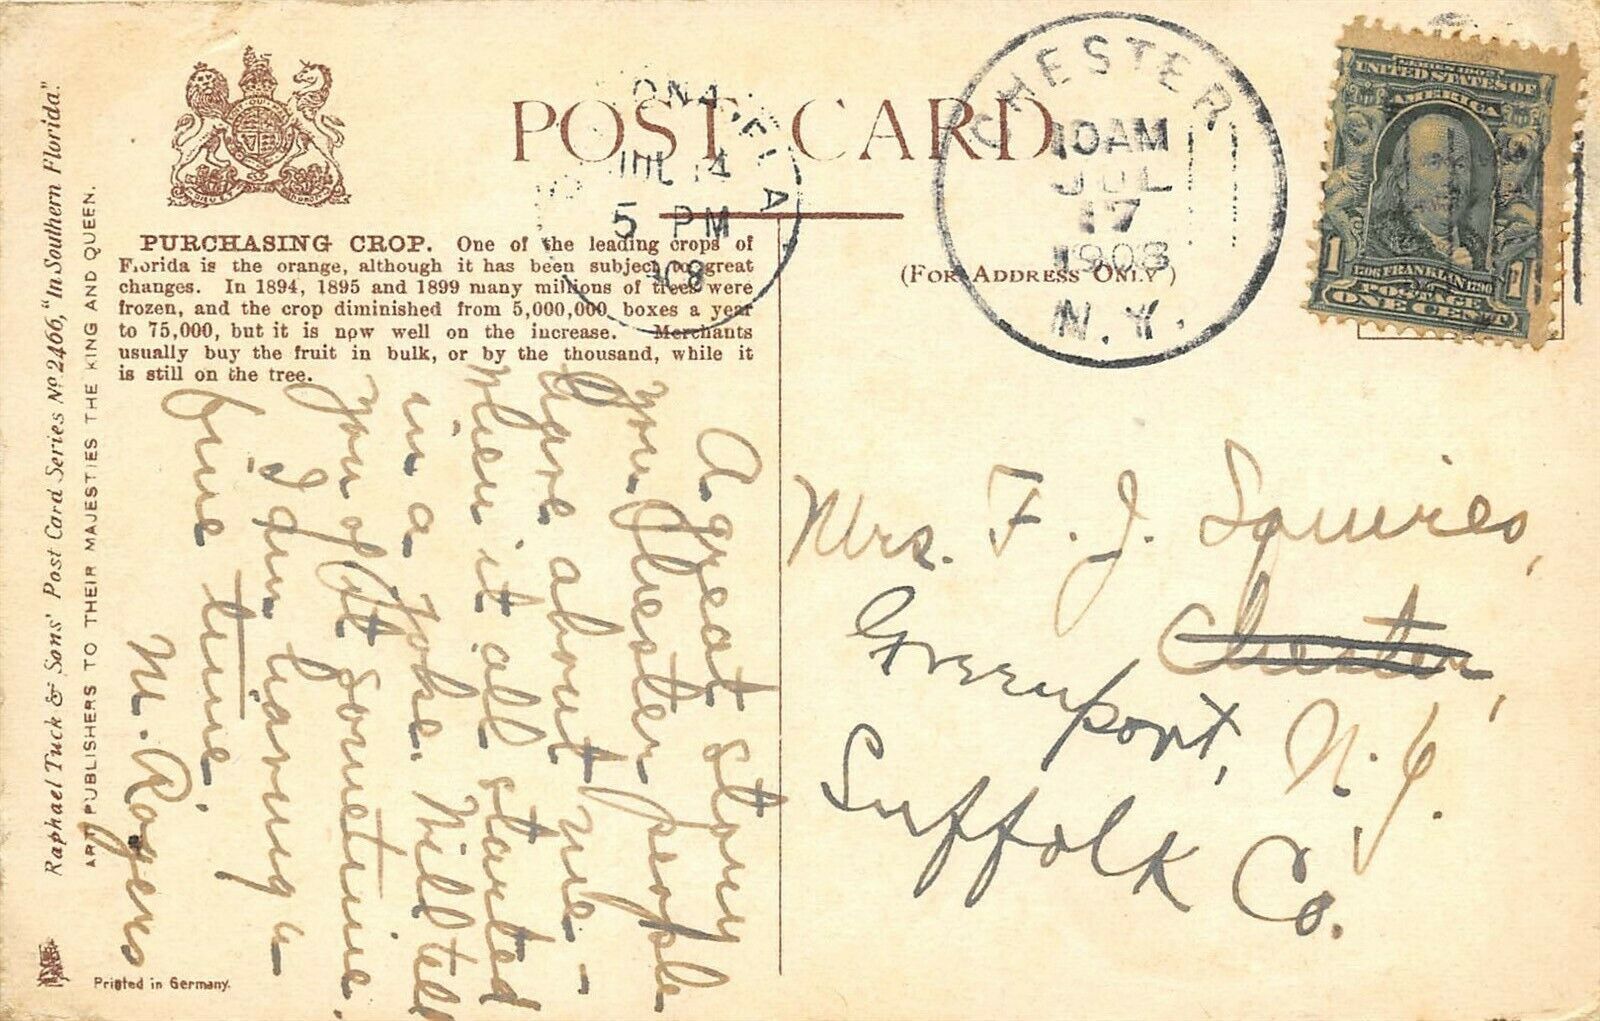 POST CARD
CHESTER
10AM
JUL
17
1908
N.Y.
JUL 14
5 PM
08
UNITED STATES OF
AMERICA
1 1706 FRANKLIN 1790 1
POSTAGE
ONE CENT
PURCHASING CROP. One of the leading crops of
Florida is the orange, although it has been subject to great
changes. In 1894, 1895 and 1899 many millions of trees were
frozen, and the crop diminished from 5,000,000 boxes a year
to 75,000, but it is now well on the increase. Merchants
usually buy the fruit in bulk, or by the thousand, while it
is still on the tree.
(FOR ADDRESS ONLY)
A great story
you Chester people
have about me -
When it all started
in a joke. Will tell
you of it sometime.
I am having a
fine time.
M. Rogers
Mrs. F. J. Squires,
Chester,
Greenport, N.Y.
Suffolk Co.
Raphael Tuck & Sons' Post Card Series No. 2466, "In Southern Florida."
ART PUBLISHERS TO THEIR MAJESTIES THE KING AND QUEEN.
Printed in Germany.